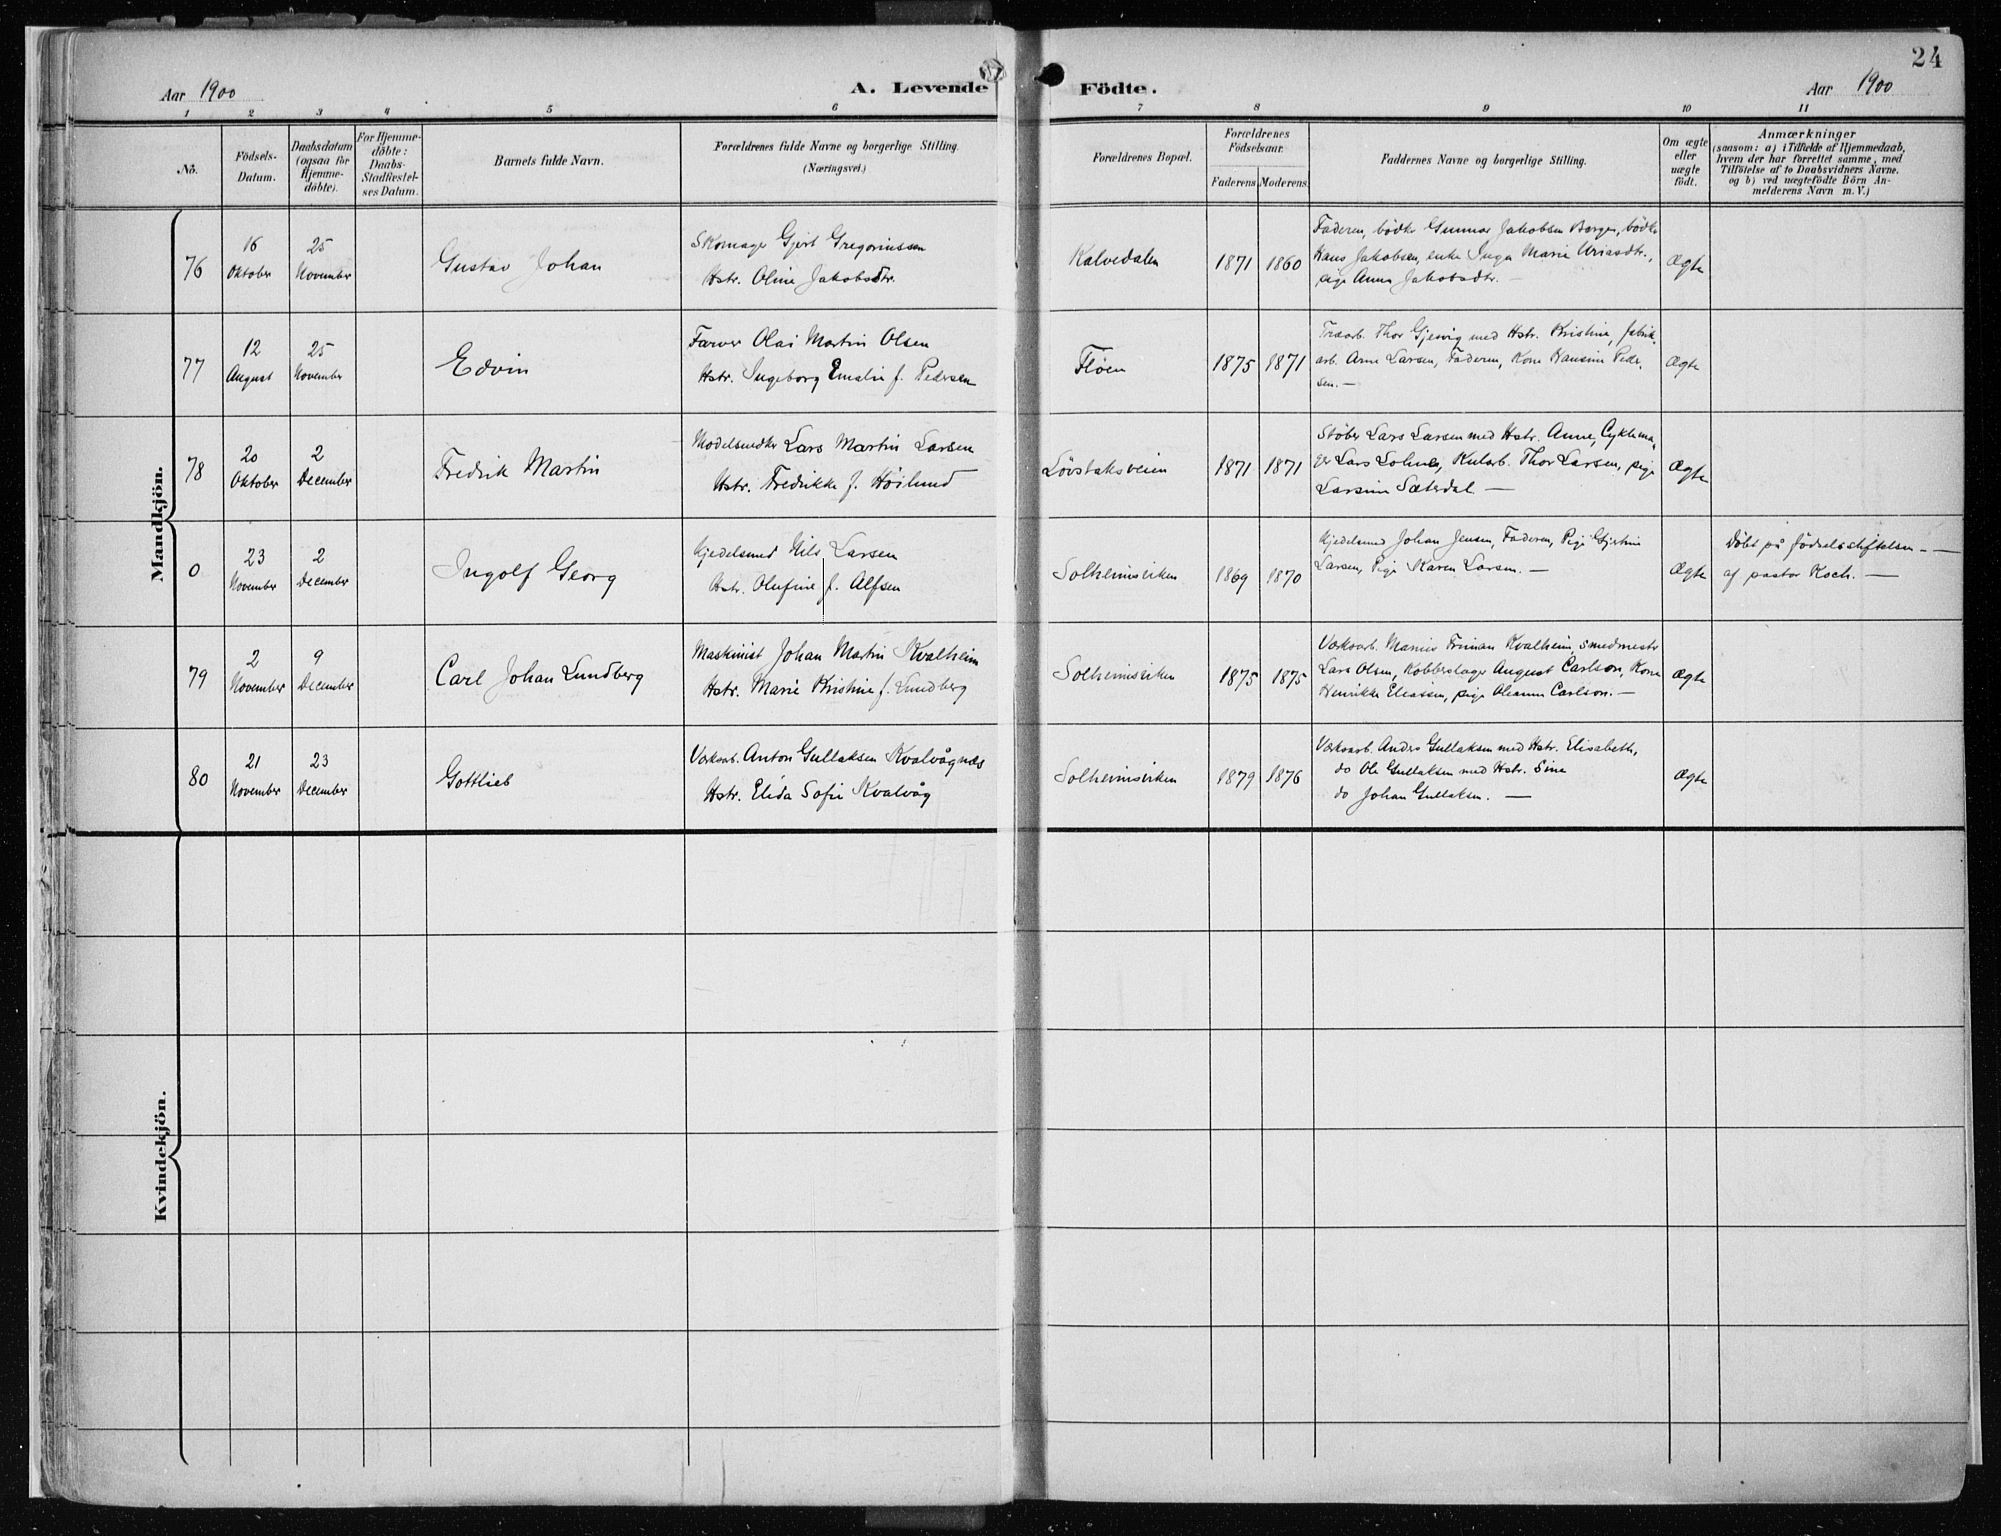 24
Aar 1900 A. Levende Födte. Aar 1900
1 2 3 4 5 6 7 8 9 10 11
No.
Födsels-
Datum.
Daabsdatum
(ogsaa for
Hjemme-
døbte).
For Hjemme-
døbte:
Daabs-
Stadfæstel-
ses Datum.
Barnets fulde Navn.
Forældrenes fulde Navne og borgerlige Stilling.
(Næringsvei.)
Forældrenes Bopæl.
Forældrenes
Födselsaar.
Faderens Moderens
Faddernes Navne og borgerlige Stilling.
Om ægte
eller
uægte
födt.
Anmærkninger
(saasom: a) i Tilfælde af Hjemmedaab,
hvem der har forrettet samme, med
Tilföielse af to Daabsvidners Navne.
og b) ved uægtefödte Börn An-
melderens Navn m. V.)
Mandkjön.
76
16
Oktober
25
November
Gustav Johan
Skomager Gjert Gregoriussen
Hstr. Oline Jakobsdtr.
Kalvedalen
1871 1860
Faderen, bødker Gunnar Jakobsen Borgen, bødker
Hans Jakobsen, enke Inga Marie Uriasdtr.,
pige Anna Jakobsdtr. —
Ægte
77
12
August
25
November
Edvin
Farver Olai Martin Olsen
Hstr. Ingeborg Emalie f. Pedersen
Fløen
1875 1871
Træarb. Thor Gjesvig med Hstr. Kristine, fabrik-
arb. Arne Larsen, Faderen, Kone Hansine Peder-
sen. —
Ægte
78
20
Oktober
2
December
Fredrik Martin
Modelsnedker Lars Martin Larsen
Hstr. Fredrikke f. Høilund
Løvstaksveien
1871 1871
Støber Lars Larsen med Hstr. Anne, Cyklema-
ger Lars Kularb. Thor Larsen, pige
Larsine Sæterdal —
Ægte
0
23
November
2
December
Ingolf Georg
Kjedelsmed Nils Larsen
Hstr. Olufine f. Alfsen
Solheimsviken
1869 1870
Kjedelsmed Johan Jensen, Faderen, Pige Gjertine
Larsen, Pige Karen Larsen. —
Ægte
Døbt på fødselsstiftelsen — —
af pastor Koch. —
79
2
November
9
December
Carl Johan Lundberg
Maskinist Johan Martin Kvalheim
Hstr. Marie Kristine f. Lundberg
Solheimsviken
1875 1875
Værksarb. Kvalheim, smedmester
Lars Olsen, Kobberslager August Carlson, Kone
Henrikke Eliassen, pige Oleanna Carlson. —
Ægte
80
21
November
23
December
Gottlieb
Værksarb. Anton Gullaksen Kvalvågnes
Hstr. Elida Sofie Kvalvåg
Solheimsviken
1879 1876
Værksarb. Anders Gullaksen med Hstr. Elisabeth,
do Ole Gullaksen med Hstr. Sine
do Johan Gullaksen. —
Ægte
Kvindekjön.